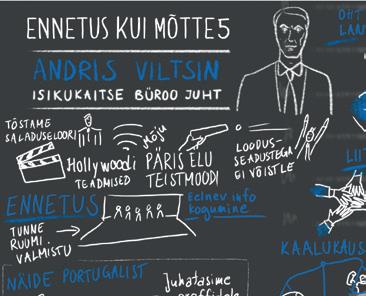 ENNETUS KUI MÕTTE5
ANDRIS VILTSIN
ISIKUKAITSE BÜROO JUHT
TÕSTAME
SALADUSELOORI
Hollywoodi
TEADMISED
MÕJU
PÄRIS ELU
TEISTMOODI
LOODUS-
SEADUSTEGA
EI VÕISTLE
ENNETUS
TUNNE
RUUMI
VALMISTU
Eelnev info
kogumine
NÄIDE PORTUGALIST
Juhatasime
OHT
LII
KAALUKAUS